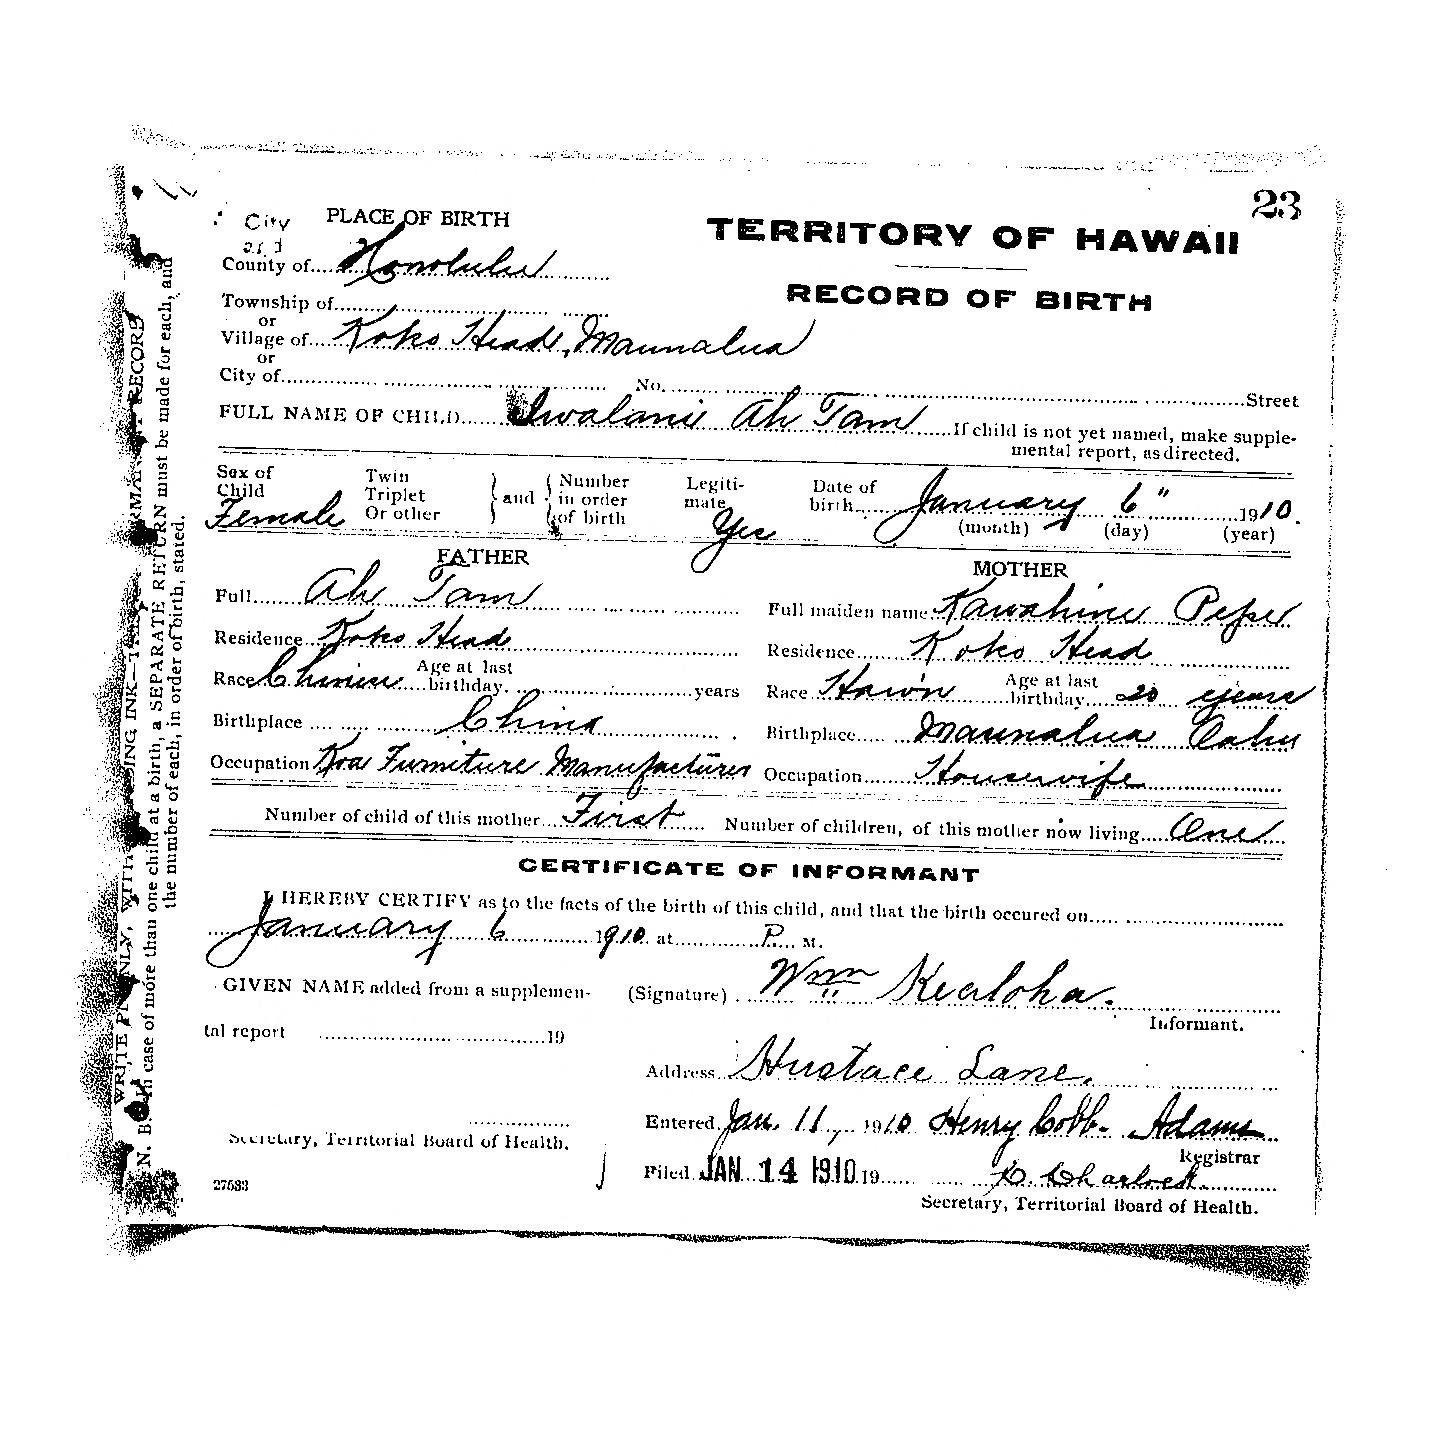 23
City PLACE OF BIRTH
and
County of Honolulu
TERRITORY OF HAWAII
RECORD OF BIRTH
Township of
or
Village of Koko Head, Maunalua
or
City of No. Street
FULL NAME OF CHILD Iwalani Ah Tam If child is not yet named, make supple-
mental report, as directed.
Sex of Child Female
Twin Triplet Or other } and { Number in order of birth
Legiti- mate Yes
Date of birth January 6" 1910.
(month) (day) (year)
FATHER
Full Ah Tam
Residence Koko Head
Race Chinese Age at last birthday years
Birthplace China
Occupation Koa Furniture Manufacturer
MOTHER
Full maiden name Kawahine Pepe
Residence Koko Head
Race Haw'n Age at last birthday 20 years
Birthplace Maunalua Oahu
Occupation Housewife
Number of child of this mother First Number of children, of this mother now living One
CERTIFICATE OF INFORMANT
I HEREBY CERTIFY as to the facts of the birth of this child, and that the birth occured on
January 6 1910 at P. M.
GIVEN NAME added from a supplemen-
tal report 19
Secretary, Territorial Board of Health.
27583
(Signature) Wm Kealoha.
Informant.
Address Hustace Lane.
Entered Jan. 11, 1910 Henry Cobb Adams
Registrar
Filed JAN 14 1910 19
Secretary, Territorial Board of Health.
N. B. In case of more than one child at a birth, a SEPARATE RETURN must be made for each, and
the number of each, in order of birth, stated.